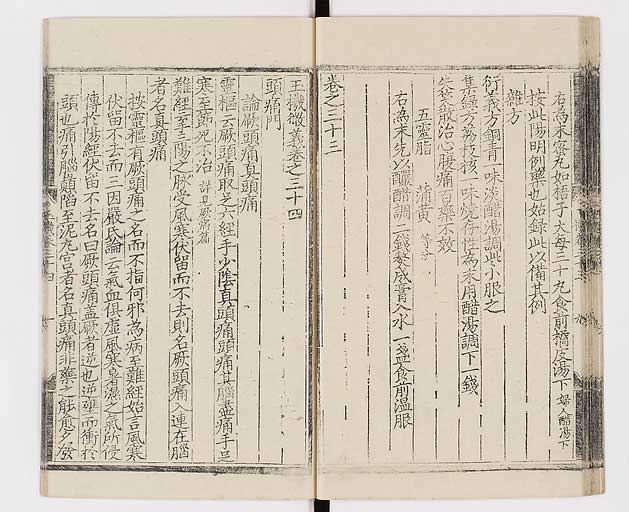 右為末蜜丸如梧子大每三十丸食前橘皮湯下婦人醋湯下
按此陽明例藥也始錄此以備其例
雜方
衍義方銅青一味淡醋湯調些小服之
集錄方荔枝核一味燒存性為末用醋湯調下一錢
失笑散治心腹痛百藥不效
五靈脂 蒲黃等分
右為末先以釅醋調二錢熬成膏入水一盞食前溫服
卷之三十三
玉機微義卷之三十四
頭痛門
論厥頭痛真頭痛
靈樞云厥頭痛取之六經手少陰真頭痛頭痛甚腦盡痛手足
寒至節死不治詳見厥痛篇
難經至三陽之脉受風寒伏留而不去則名厥頭痛入連在腦
者名真頭痛
按靈樞有厥頭痛之名而不指何邪為病至難經始言風寒
伏留不去而三因嚴氏論云氣血俱虛風寒暑濕之氣所侵
傳於陽經伏留不去名曰厥頭痛盖厥者逆也逆壅而衝於
頭也痛引腦巔陷至泥丸宮者名真頭痛非藥之能愈夕發